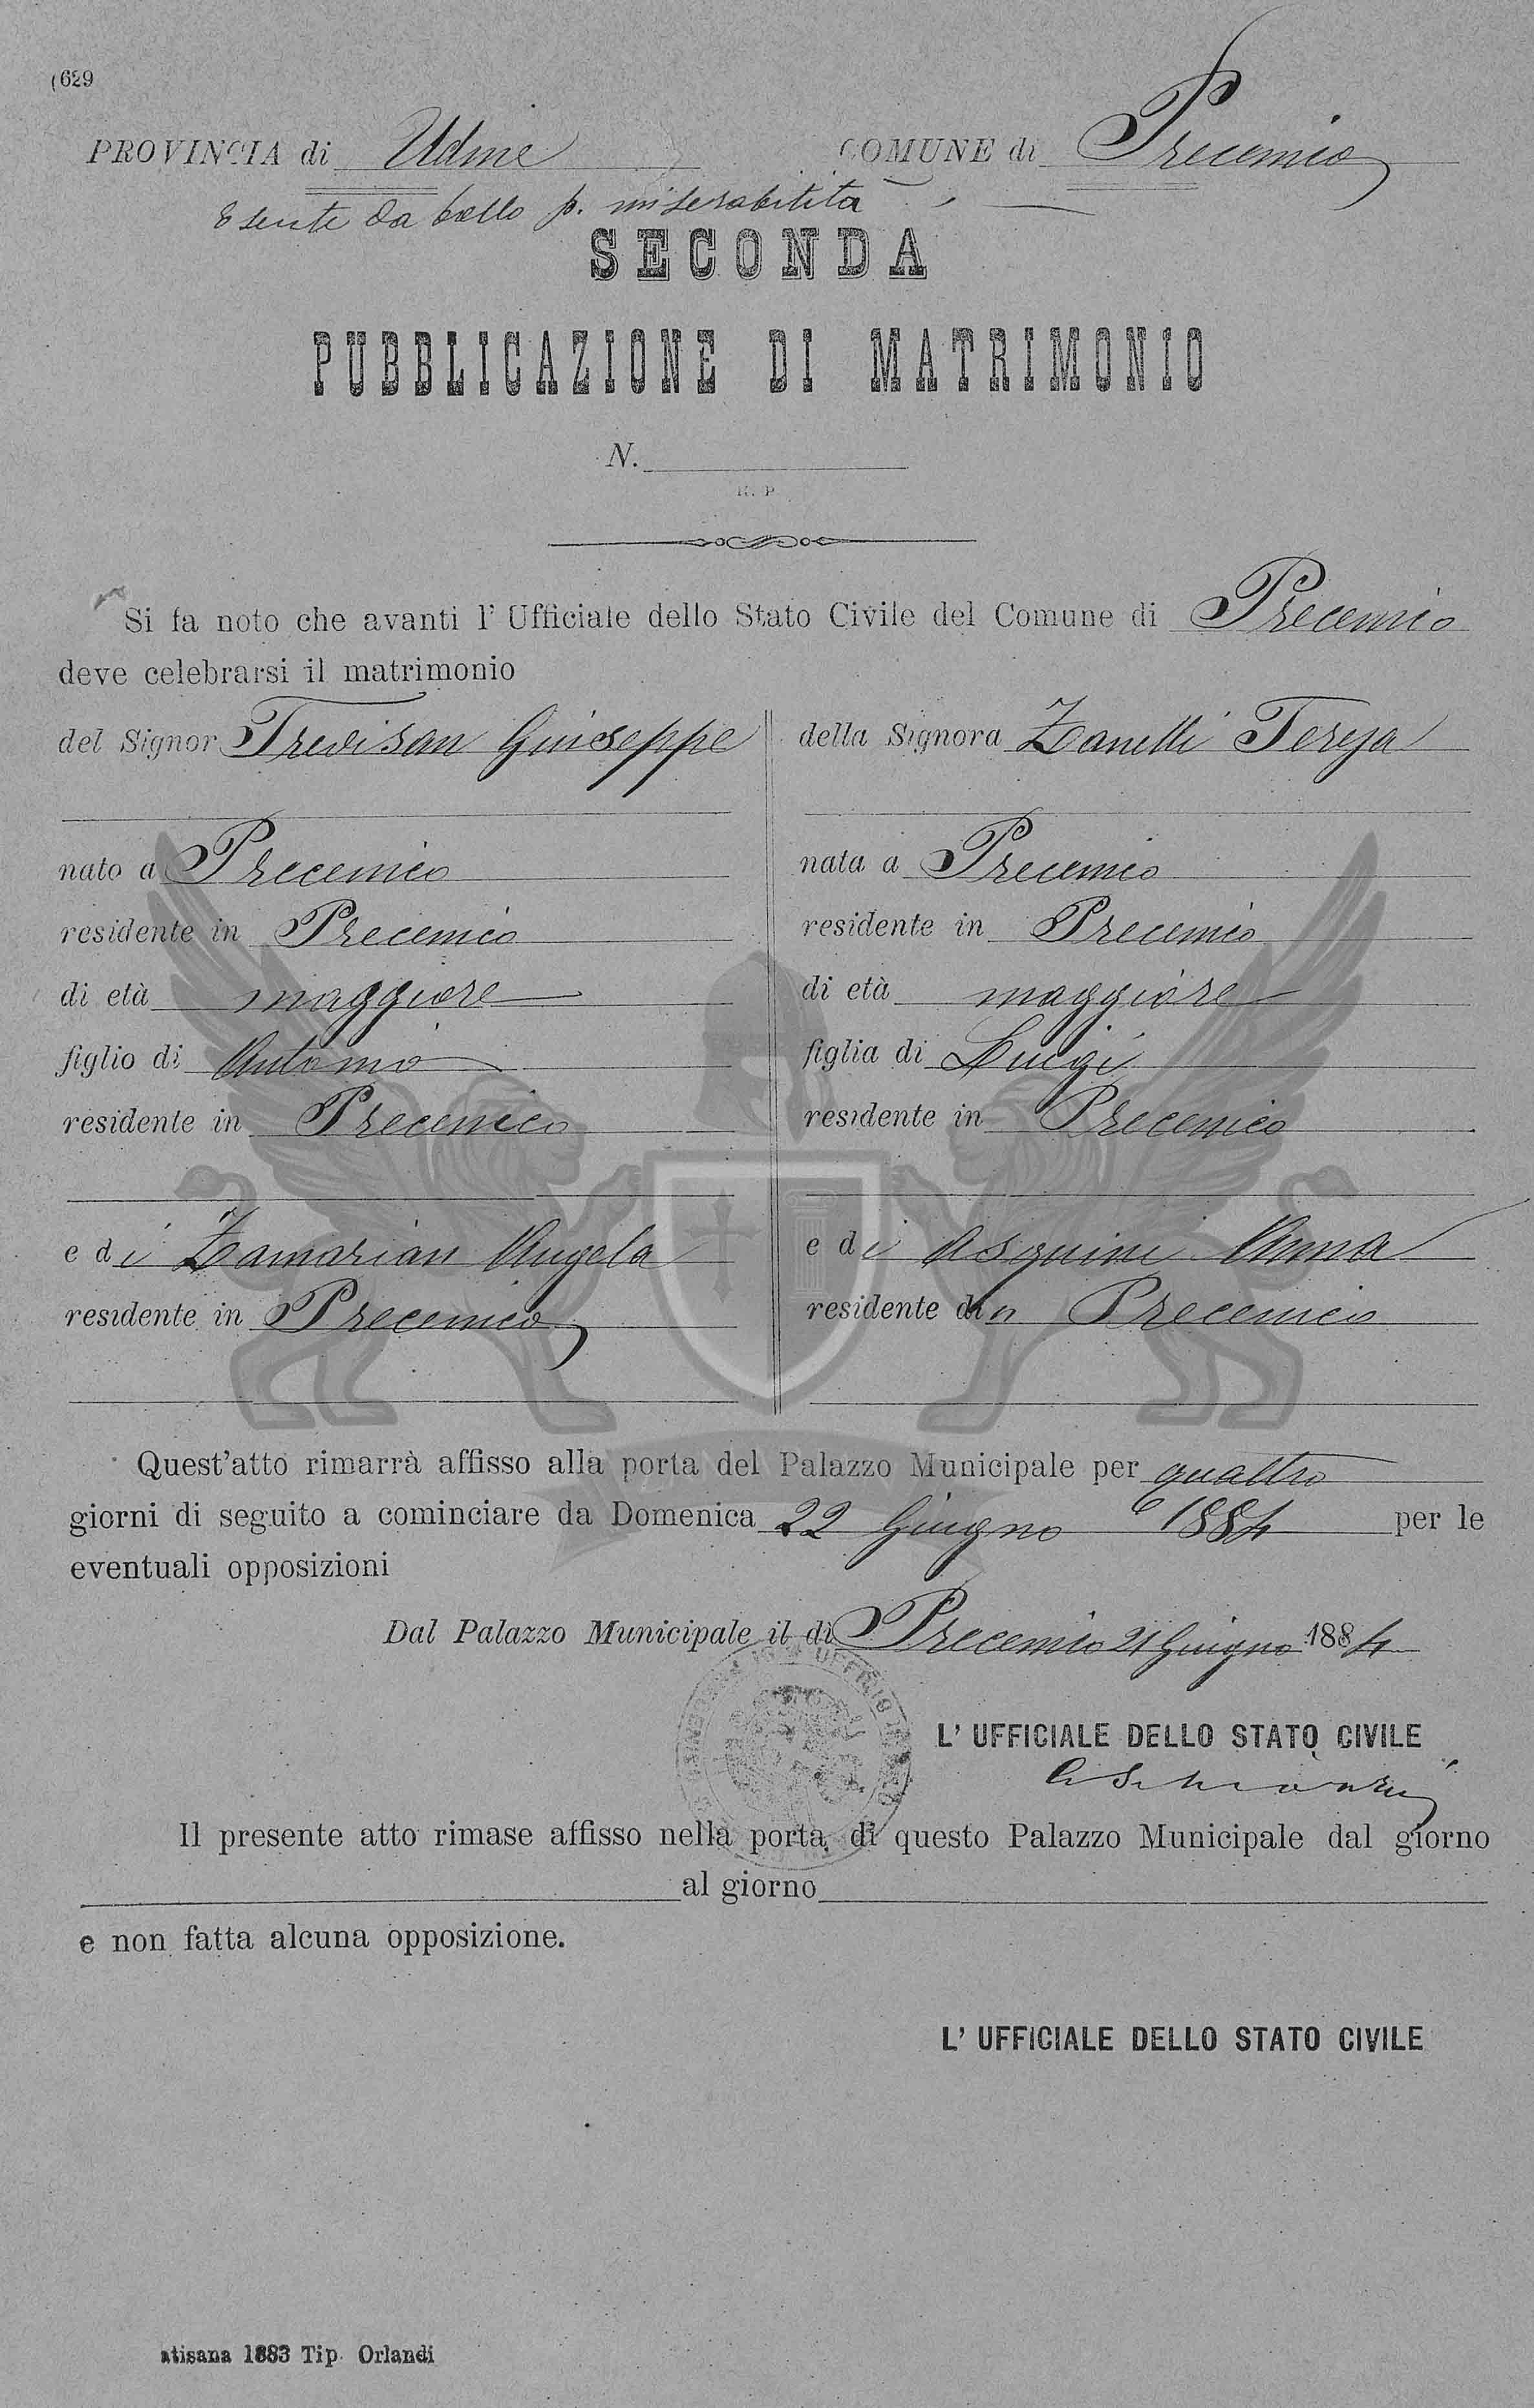 (629
PROVINCIA di Udine COMUNE di Precenico
Esente da bollo p. miserabilità
SECONDA
PUBBLICAZIONE DI MATRIMONIO
N.
R. P.
Si fa noto che avanti l' Ufficiale dello Stato Civile del Comune di Precenico
deve celebrarsi il matrimonio
del Signor Trevisan Giuseppe
nato a Precenico
residente in Precenico
di età maggiore
figlio di Antonio
residente in Precenico
e di Zamarian Angela
residente in Precenico
della Signora Zanelli Teresa
nata a Precenico
residente in Precenico
di età maggiore
figlia di Luigi
residente in Precenico
e di Asquini Anna
residente in Precenico
Quest'atto rimarrà affisso alla porta del Palazzo Municipale per quattro
giorni di seguito a cominciare da Domenica 22 Giugno 1884 per le
eventuali opposizioni
Dal Palazzo Municipale il dì Precenico 21 Giugno 1884
L' UFFICIALE DELLO STATO CIVILE
Il presente atto rimase affisso nella porta di questo Palazzo Municipale dal giorno
al giorno
e non fatta alcuna opposizione.
L' UFFICIALE DELLO STATO CIVILE
atisana 1883 Tip. Orlandi